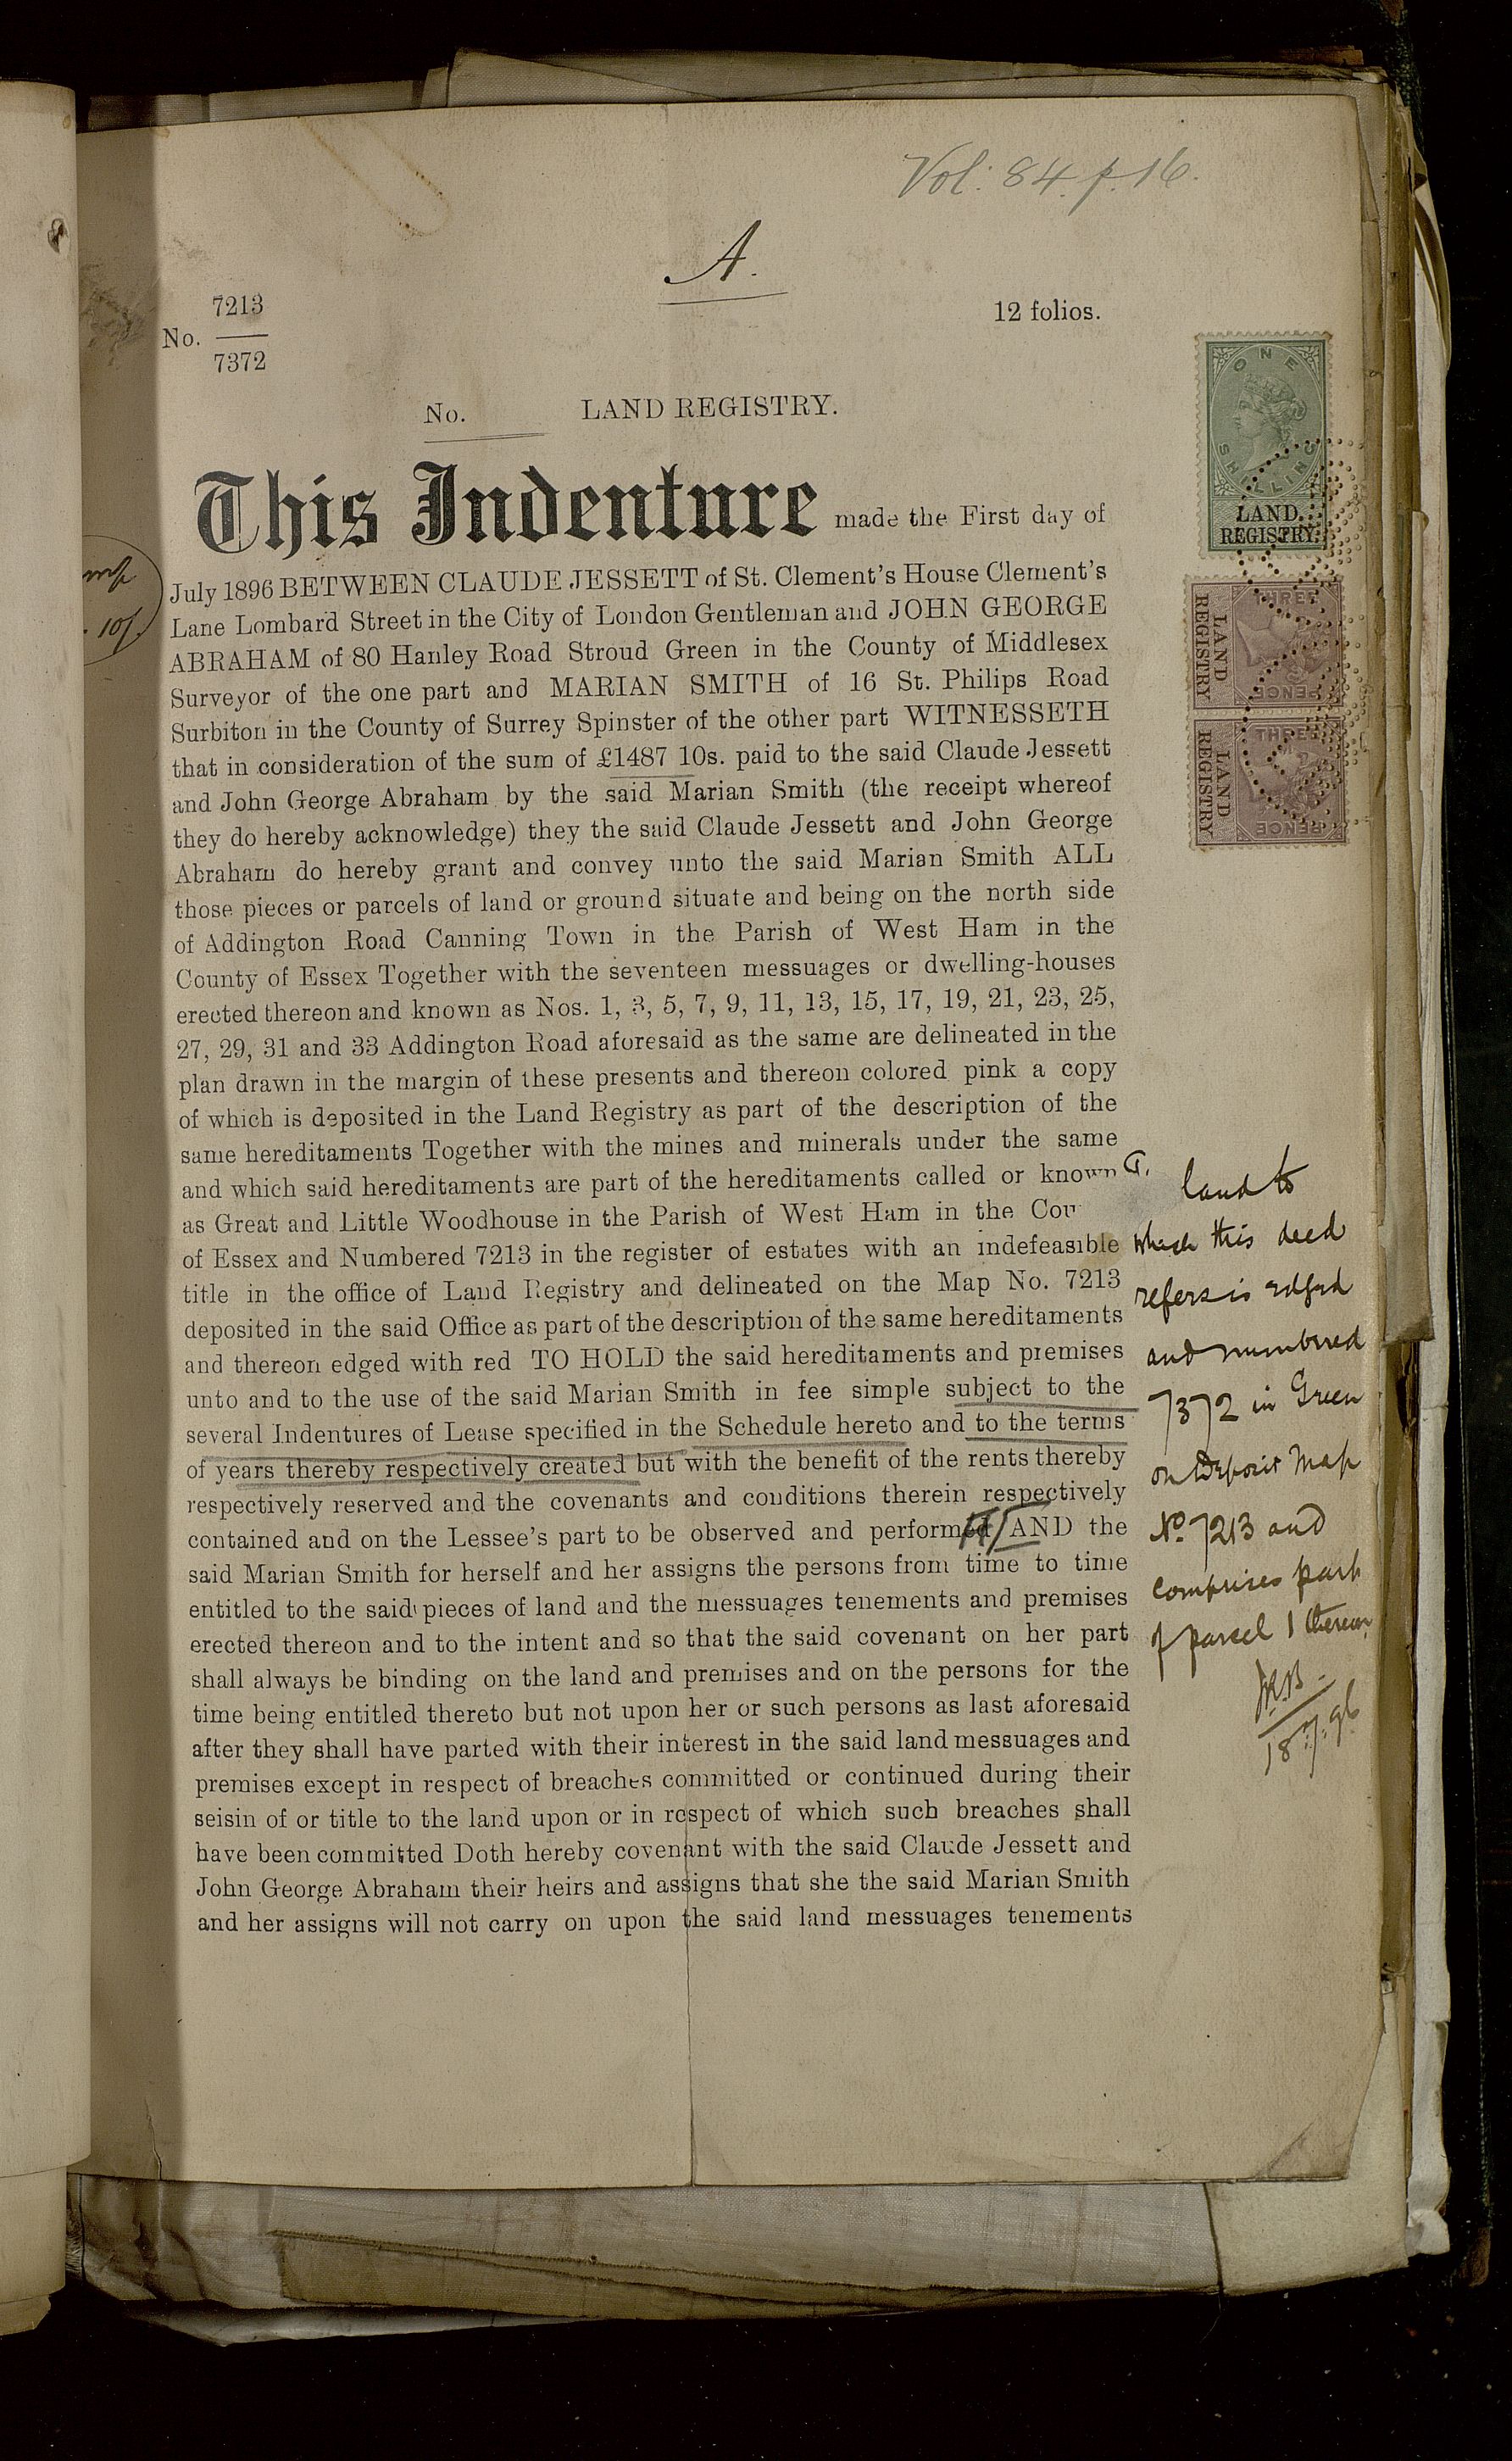 Vol: 84. p. 16.
A.
7213
No.
7372
12 folios.
No. LAND REGISTRY.
ONE
SHILLING
LAND
REGISTRY.
THREE
PENCE
LAND
REGISTRY
THREE
PENCE
LAND
REGISTRY
10/.
This Indenture made the First day of
July 1896 BETWEEN CLAUDE JESSETT of St. Clement's House Clement's
Lane Lombard Street in the City of London Gentleman and JOHN GEORGE
ABRAHAM of 80 Hanley Road Stroud Green in the County of Middlesex
Surveyor of the one part and MARIAN SMITH of 16 St. Philips Road
Surbiton in the County of Surrey Spinster of the other part WITNESSETH
that in consideration of the sum of £1487 10s. paid to the said Claude Jessett
and John George Abraham by the said Marian Smith (the receipt whereof
they do hereby acknowledge) they the said Claude Jessett and John George
Abraham do hereby grant and convey unto the said Marian Smith ALL
those pieces or parcels of land or ground situate and being on the north side
of Addington Road Canning Town in the Parish of West Ham in the
County of Essex Together with the seventeen messuages or dwelling-houses
erected thereon and known as Nos. 1, 3, 5, 7, 9, 11, 13, 15, 17, 19, 21, 23, 25,
27, 29, 31 and 33 Addington Road aforesaid as the same are delineated in the
plan drawn in the margin of these presents and thereon colored pink a copy
of which is deposited in the Land Registry as part of the description of the
same hereditaments Together with the mines and minerals under the same
and which said hereditaments are part of the hereditaments called or known
as Great and Little Woodhouse in the Parish of West Ham in the Cou
of Essex and Numbered 7213 in the register of estates with an indefeasible
title in the office of Land Registry and delineated on the Map No. 7213
deposited in the said Office as part of the description of the same hereditaments
and thereon edged with red TO HOLD the said hereditaments and premises
unto and to the use of the said Marian Smith in fee simple subject to the
several Indentures of Lease specified in the Schedule hereto and to the terms
of years thereby respectively created but with the benefit of the rents thereby
respectively reserved and the covenants and conditions therein respectively
contained and on the Lessee's part to be observed and performed AND the
said Marian Smith for herself and her assigns the persons from time to time
entitled to the said pieces of land and the messuages tenements and premises
erected thereon and to the intent and so that the said covenant on her part
shall always be binding on the land and premises and on the persons for the
time being entitled thereto but not upon her or such persons as last aforesaid
after they shall have parted with their interest in the said land messuages and
premises except in respect of breaches committed or continued during their
seisin of or title to the land upon or in respect of which such breaches shall
have been committed Doth hereby covenant with the said Claude Jessett and
John George Abraham their heirs and assigns that she the said Marian Smith
and her assigns will not carry on upon the said land messuages tenements
land to
which this deed
refers is edged
and numbered
7372 in Green
on Deposit Map
No. 7213 and
comprises part
of parcel 1 thereon
18.7.96